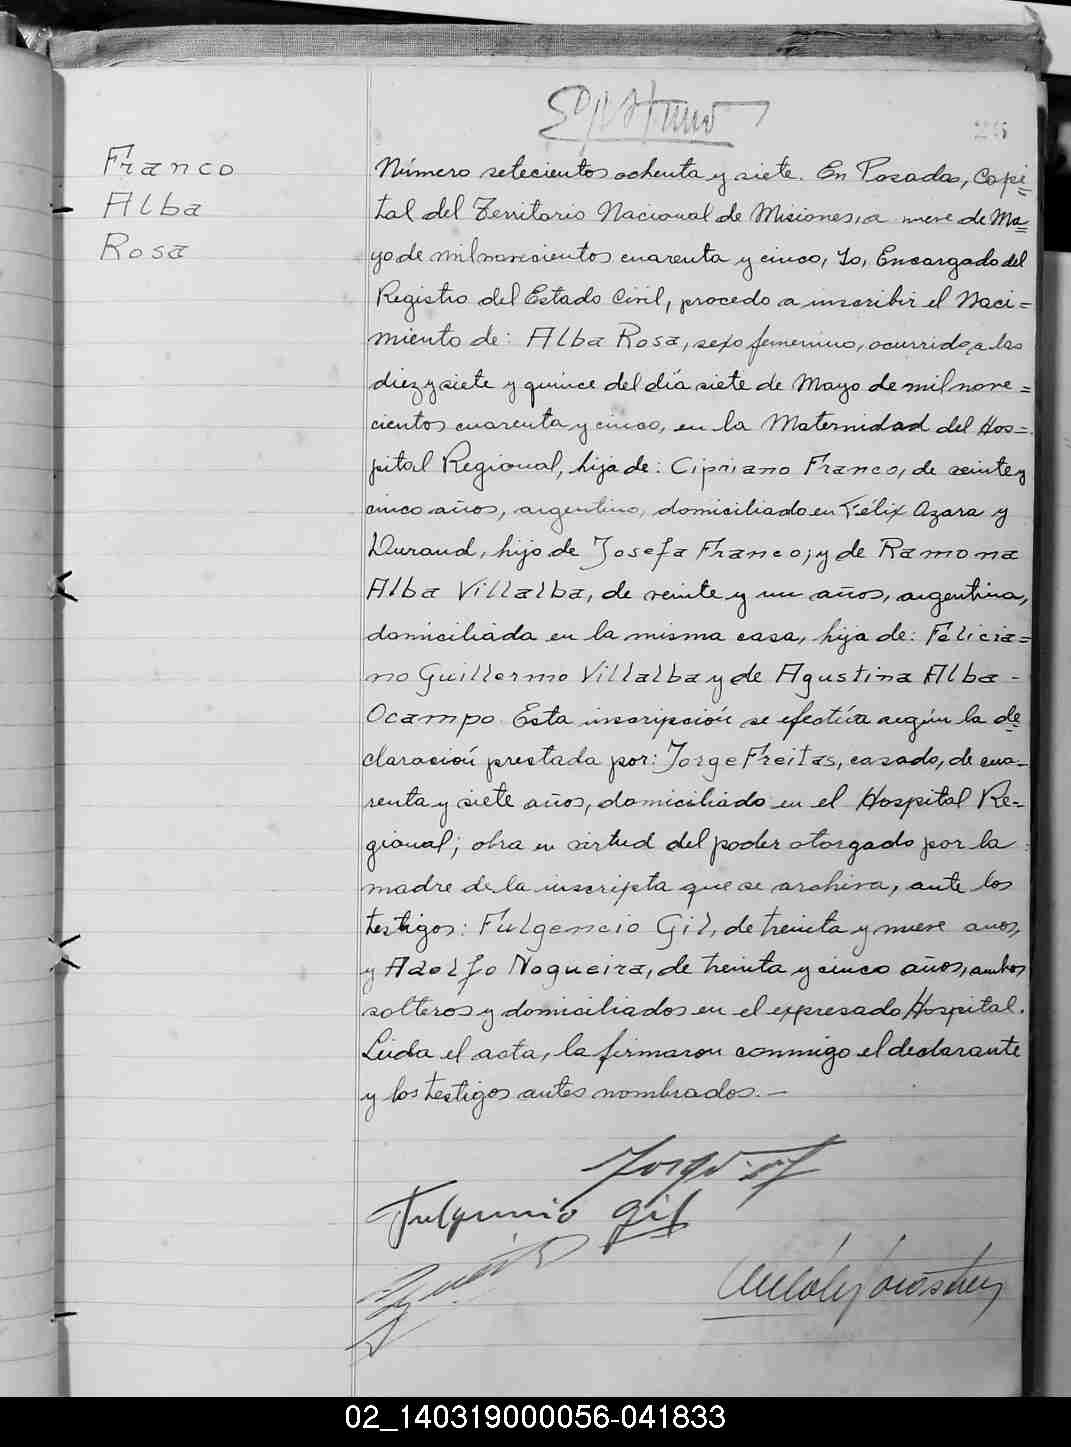 Franco
Alba
Rosa
Número setecientos ochenta y siete. En Posadas, Capi=
tal del Territorio Nacional de Misiones, a nueve de Ma=
yo de mil novecientos cuarenta y cinco, Yo, Encargado del
Registro del Estado Civil, procedo a inscribir el Naci=
miento de: Alba Rosa, sexo femenino, ocurrido a las
diez y siete y quince del día siete de Mayo de mil nove=
cientos cuarenta y cinco, en la Maternidad del Hos=
pital Regional, hija de: Cipriano Franco, de veinte y
cinco años, argentino, domiciliado en Félix Azara y
Durand, hijo de Josefa Franco; y de Ramona
Alba Villalba, de veinte y un años, argentina,
domiciliada en la misma casa, hija de: Felicia=
no Guillermo Villalba y de Agustina Alba -
Ocampo. Esta inscripción se efectúa según la de=
claración prestada por: Jorge Freitas, casado, de cua-
renta y siete años, domiciliado en el Hospital Re-
gional; obra en virtud del poder otorgado por la
madre de la inscripta que se archiva, ante los
testigos: Fulgencio Gil, de treinta y nueve años,
y Adolfo Nogueira, de treinta y cinco años, ambos
solteros y domiciliados en el expresado Hospital.
Leida el acta, la firmaron conmigo el declarante
y los testigos antes nombrados. —
Fulgencio Gil
02_140319000056-041833